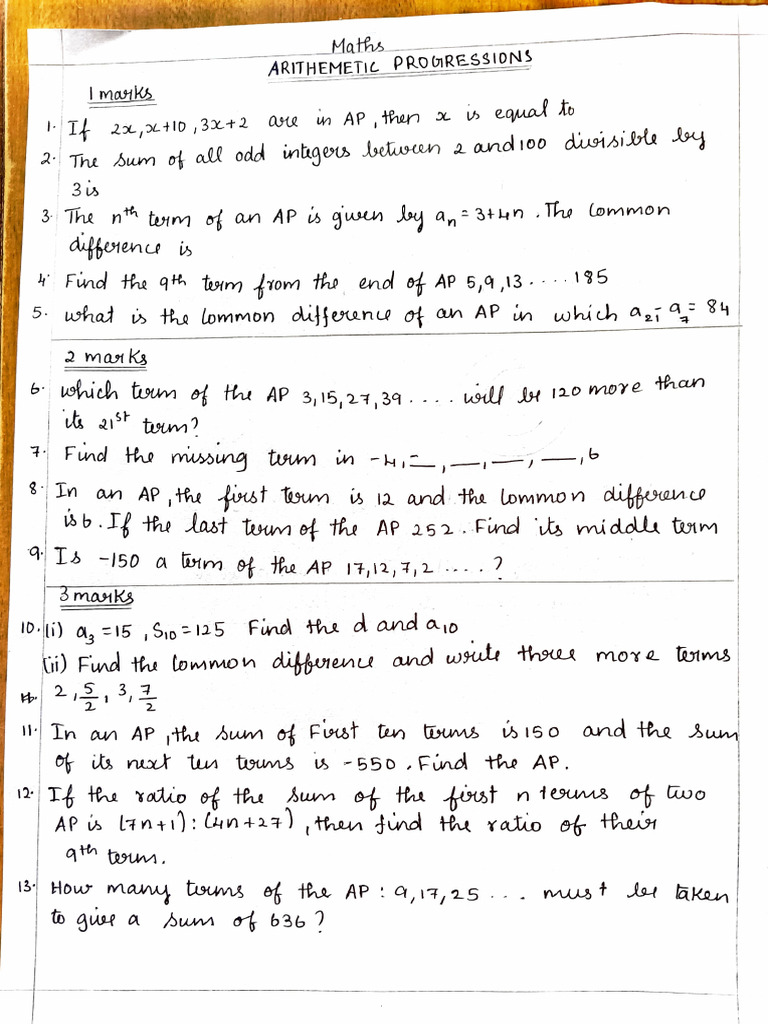 Maths
ARITHEMETIC PROGRESSIONS
1 marks
1. If 2x, x+10, 3x+2 are in AP, then x is equal to
2. The sum of all odd integers between 2 and 100 divisible by
3 is
3. The nth term of an AP is given by an = 3+4n. The common
difference is
4. Find the 9th term from the end of AP 5, 9, 13 .... 185
5. what is the common difference of an AP in which a21 - a7 = 84
2 marks
6. which term of the AP 3, 15, 27, 39 .... will be 120 more than
its 21st term?
7. Find the missing term in -4, _, _, _, _, 6
8. In an AP, the first term is 12 and the common difference
is 6. If the last term of the AP 252. Find its middle term
9. Is -150 a term of the AP 17, 12, 7, 2 ....?
3 marks
10. (i) a3 = 15, S10 = 125 Find the d and a10
(ii) Find the common difference and write three more terms
2, 5/2, 3, 7/2
11. In an AP, the sum of First ten terms is 150 and the sum
of its next ten terms is -550. Find the AP.
12. If the ratio of the sum of the first n terms of two
AP is (7n+1) : (4n+27), then find the ratio of their
9th term.
13. How many terms of the AP : 9, 17, 25 ... must be taken
to give a sum of 636?